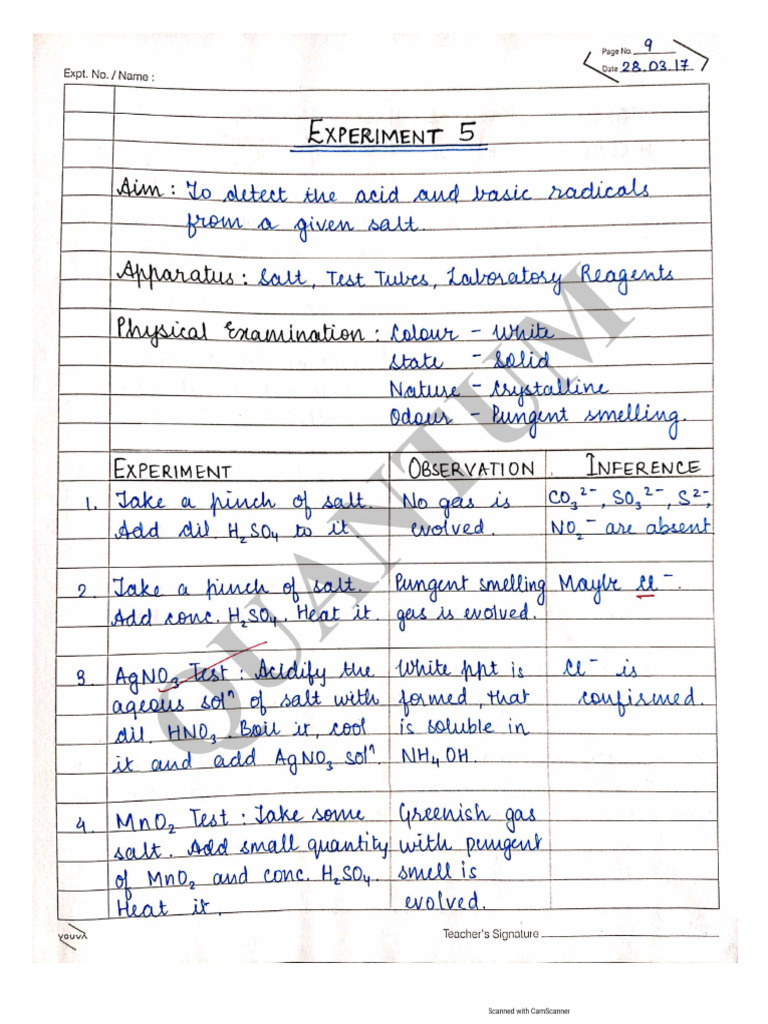 Page No. 9
Date 28.03.17
Expt. No. / Name :
EXPERIMENT 5
Aim : To detect the acid and basic radicals
from a given salt.
Apparatus : Salt, Test Tubes, Laboratory Reagents
Physical Examination : Colour - White
State - Solid
Nature - Crystalline
Odour - Pungent smelling.
EXPERIMENT OBSERVATION INFERENCE
1. Take a pinch of salt. No gas is CO₃²⁻, SO₃²⁻, S²⁻,
Add dil. H₂SO₄ to it. evolved. NO₂⁻ are absent
2. Take a pinch of salt. Pungent smelling Maybe Cl⁻.
Add conc. H₂SO₄. Heat it. gas is evolved.
3. AgNO₃ Test : Acidify the White ppt is Cl⁻ is
aqeous solⁿ of salt with formed, that confirmed.
dil. HNO₃. Boil it, cool is soluble in
it and add AgNO₃ solⁿ. NH₄OH.
4. MnO₂ Test : Take some Greenish gas
salt. Add small quantity with pungent
of MnO₂ and conc. H₂SO₄. smell is
Heat it. evolved.
youva
Teacher's Signature
QUANTUM
Scanned with CamScanner